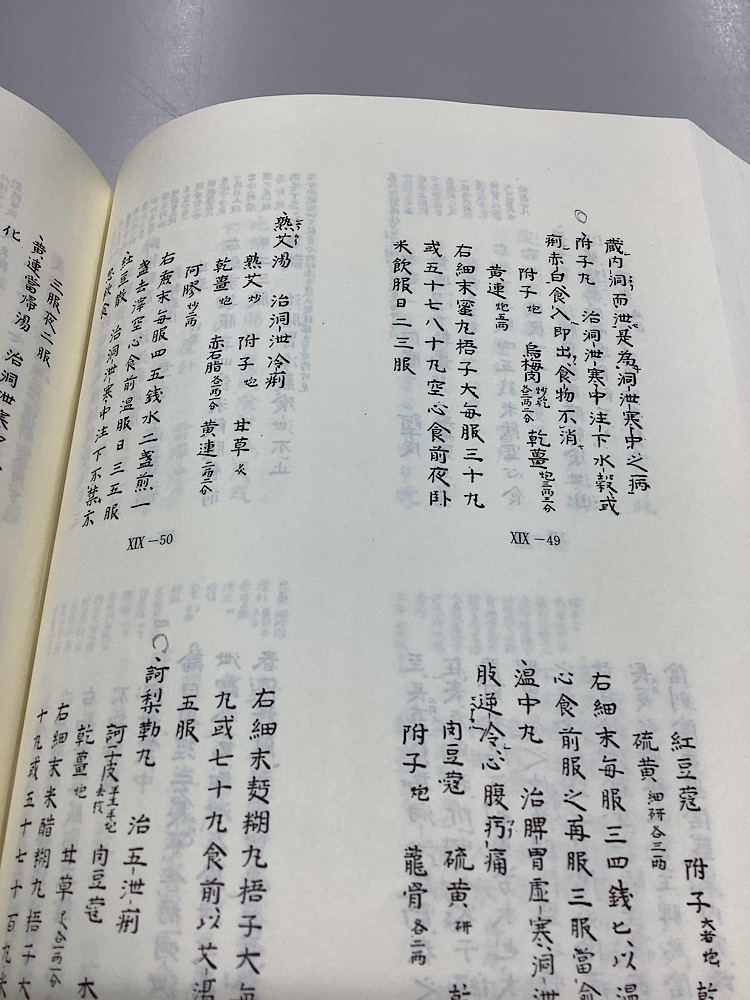 蔵内洞而泄是為洞泄寒中之病
附子丸　治洞泄寒中注下水穀或
痢赤白食入即出食物不消
附子炮　烏梅肉炒乾各三兩二分　乾薑炮三兩三分
黄連炮五兩
右細末蜜丸梧子大毎服三十丸
或五十七八十丸空心食前夜卧
米飲服日二三服
XIX－49
熟艾湯　治洞泄冷痢
熟艾炒　附子炮　甘草炙
乾薑炮　赤石脂各一兩一分　黄連一兩二分
阿膠炒一兩
右麁末毎服四五錢水二盞煎一
盞去滓空心食前温服日三五服
紅豆散　治洞泄寒中注下不禁不
XIX－50
三服夜二服
黄連當帰湯　治洞泄寒
化
紅豆蔻　附子大者炮
硫黄細研各三兩
右細末毎服三四錢匕以温
心食前服之再服三服當愈
温中丸　治脾胃虚寒洞泄
肢逆冷心腹㽲痛
肉豆蔻　硫黄研　乾
附子炮　龍骨各二兩
右細末麪糊丸梧子大毎
丸或七十丸食前以艾湯
五服
訶梨勒丸　治五泄痢
訶子皮　肉豆蔻　木
乾薑炮　甘草炙各一兩一分
右細末米醋糊丸梧子大
十丸或五十七十百丸米